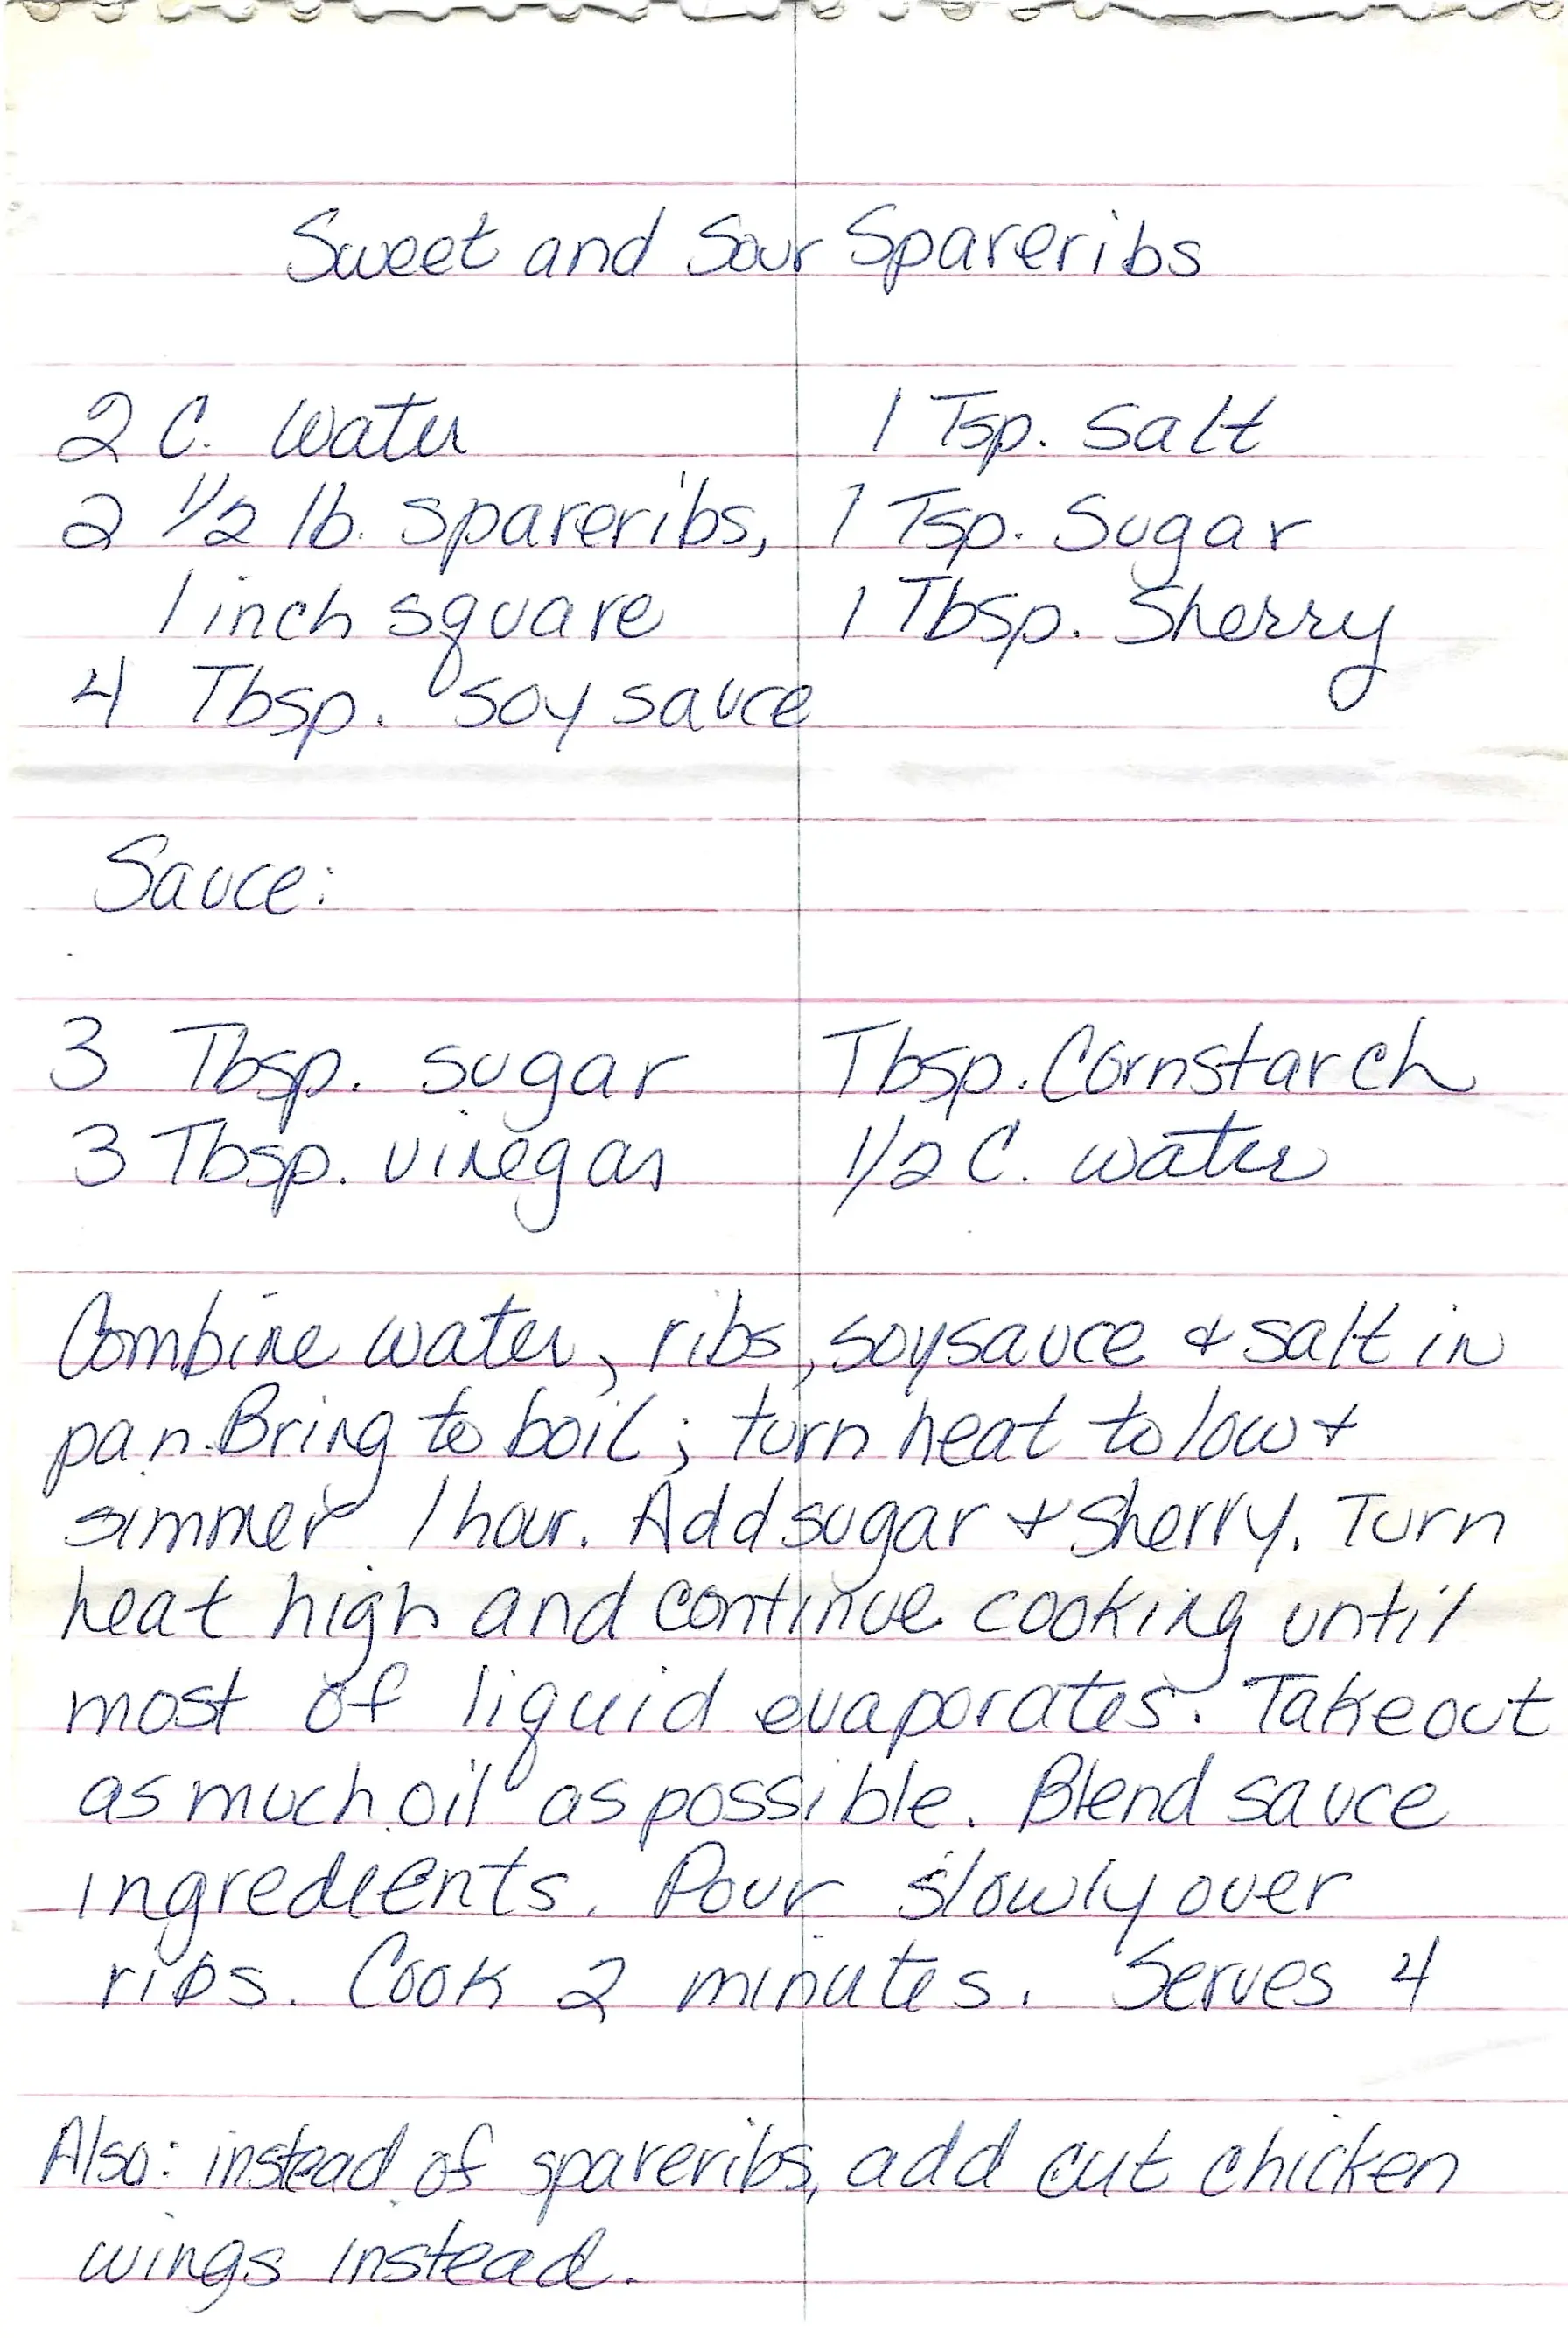 Sweet and Sour Spareribs
2 C. water 1 Tsp. Salt
2 1/2 lb. spareribs, 1 Tsp. Sugar
1 inch square 1 Tbsp. Sherry
4 Tbsp. soy sauce
Sauce:
3 Tbsp. sugar Tbsp. Cornstarch
3 Tbsp. vinegar 1/2 C. water
Combine water, ribs, soysauce & salt in
pan. Bring to boil; turn heat to low +
simmer 1 hour. Add sugar + Sherry. Turn
heat high and continue cooking until
most of liquid evaporates. Take out
as much oil as possible. Blend sauce
ingredients. Pour slowly over
ribs. Cook 2 minutes. Serves 4
Also: instead of spareribs, add cut chicken
wings instead.